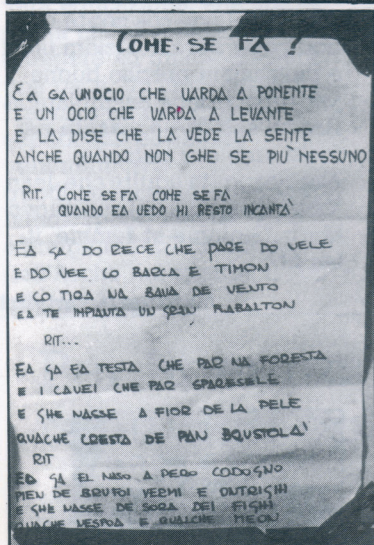 COME SE FA ?
EA GA UN OCIO CHE VARDA A PONENTE
E UN OCIO CHE VARDA A LEVANTE
E LA DISE CHE LA VEDE LA SENTE
ANCHE QUANDO NON GHE SE PIU' NESSUNO
RIT. COME SE FA COME SE FA
QUANDO EA VEDO MI RESTO INCANTA'
EA GA DO RECE CHE PARE DO VELE
E DO VEE CO BARCA E TIMON
E CO TIRA NA BAVA DE VENTO
EA TE IMPIANTA UN GRAN RABALTON
RIT...
EA GA EA TESTA CHE PAR NA FORESTA
E I CAVEI CHE PAR SPARESELE
E GHE NASSE A FIOR DE LA PELE
QUACHE CRESTA DE PAN BRUSTOLA'
RIT
EA GA EL NASO A PERO CODOGNO
PIEN DE BRUFOI VERMI E ONTRIGHI
E GHE NASSE DE SORA DEI FIGHI
QUACHE VESPOA E QUALCHE MEON